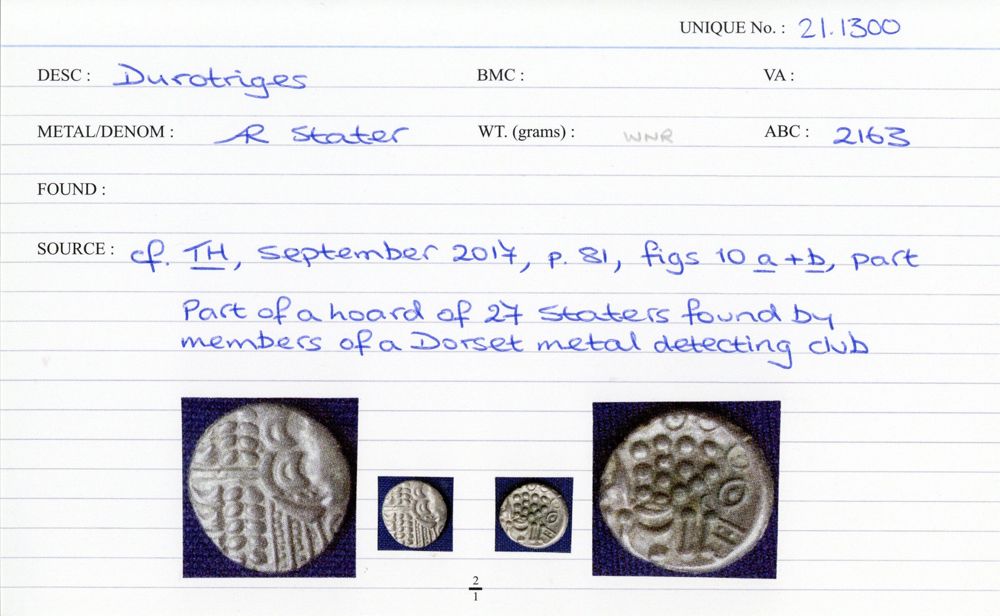 UNIQUE No. : 21.1300
DESC : Durotriges BMC : VA :
METAL/DENOM : AR Stater WT. (grams) : WNR ABC : 2163
FOUND :
SOURCE : cf. TH, September 2017, p. 81, figs 10 a + b, part
Part of a hoard of 27 Staters found by
members of a Dorset metal detecting club
2
1